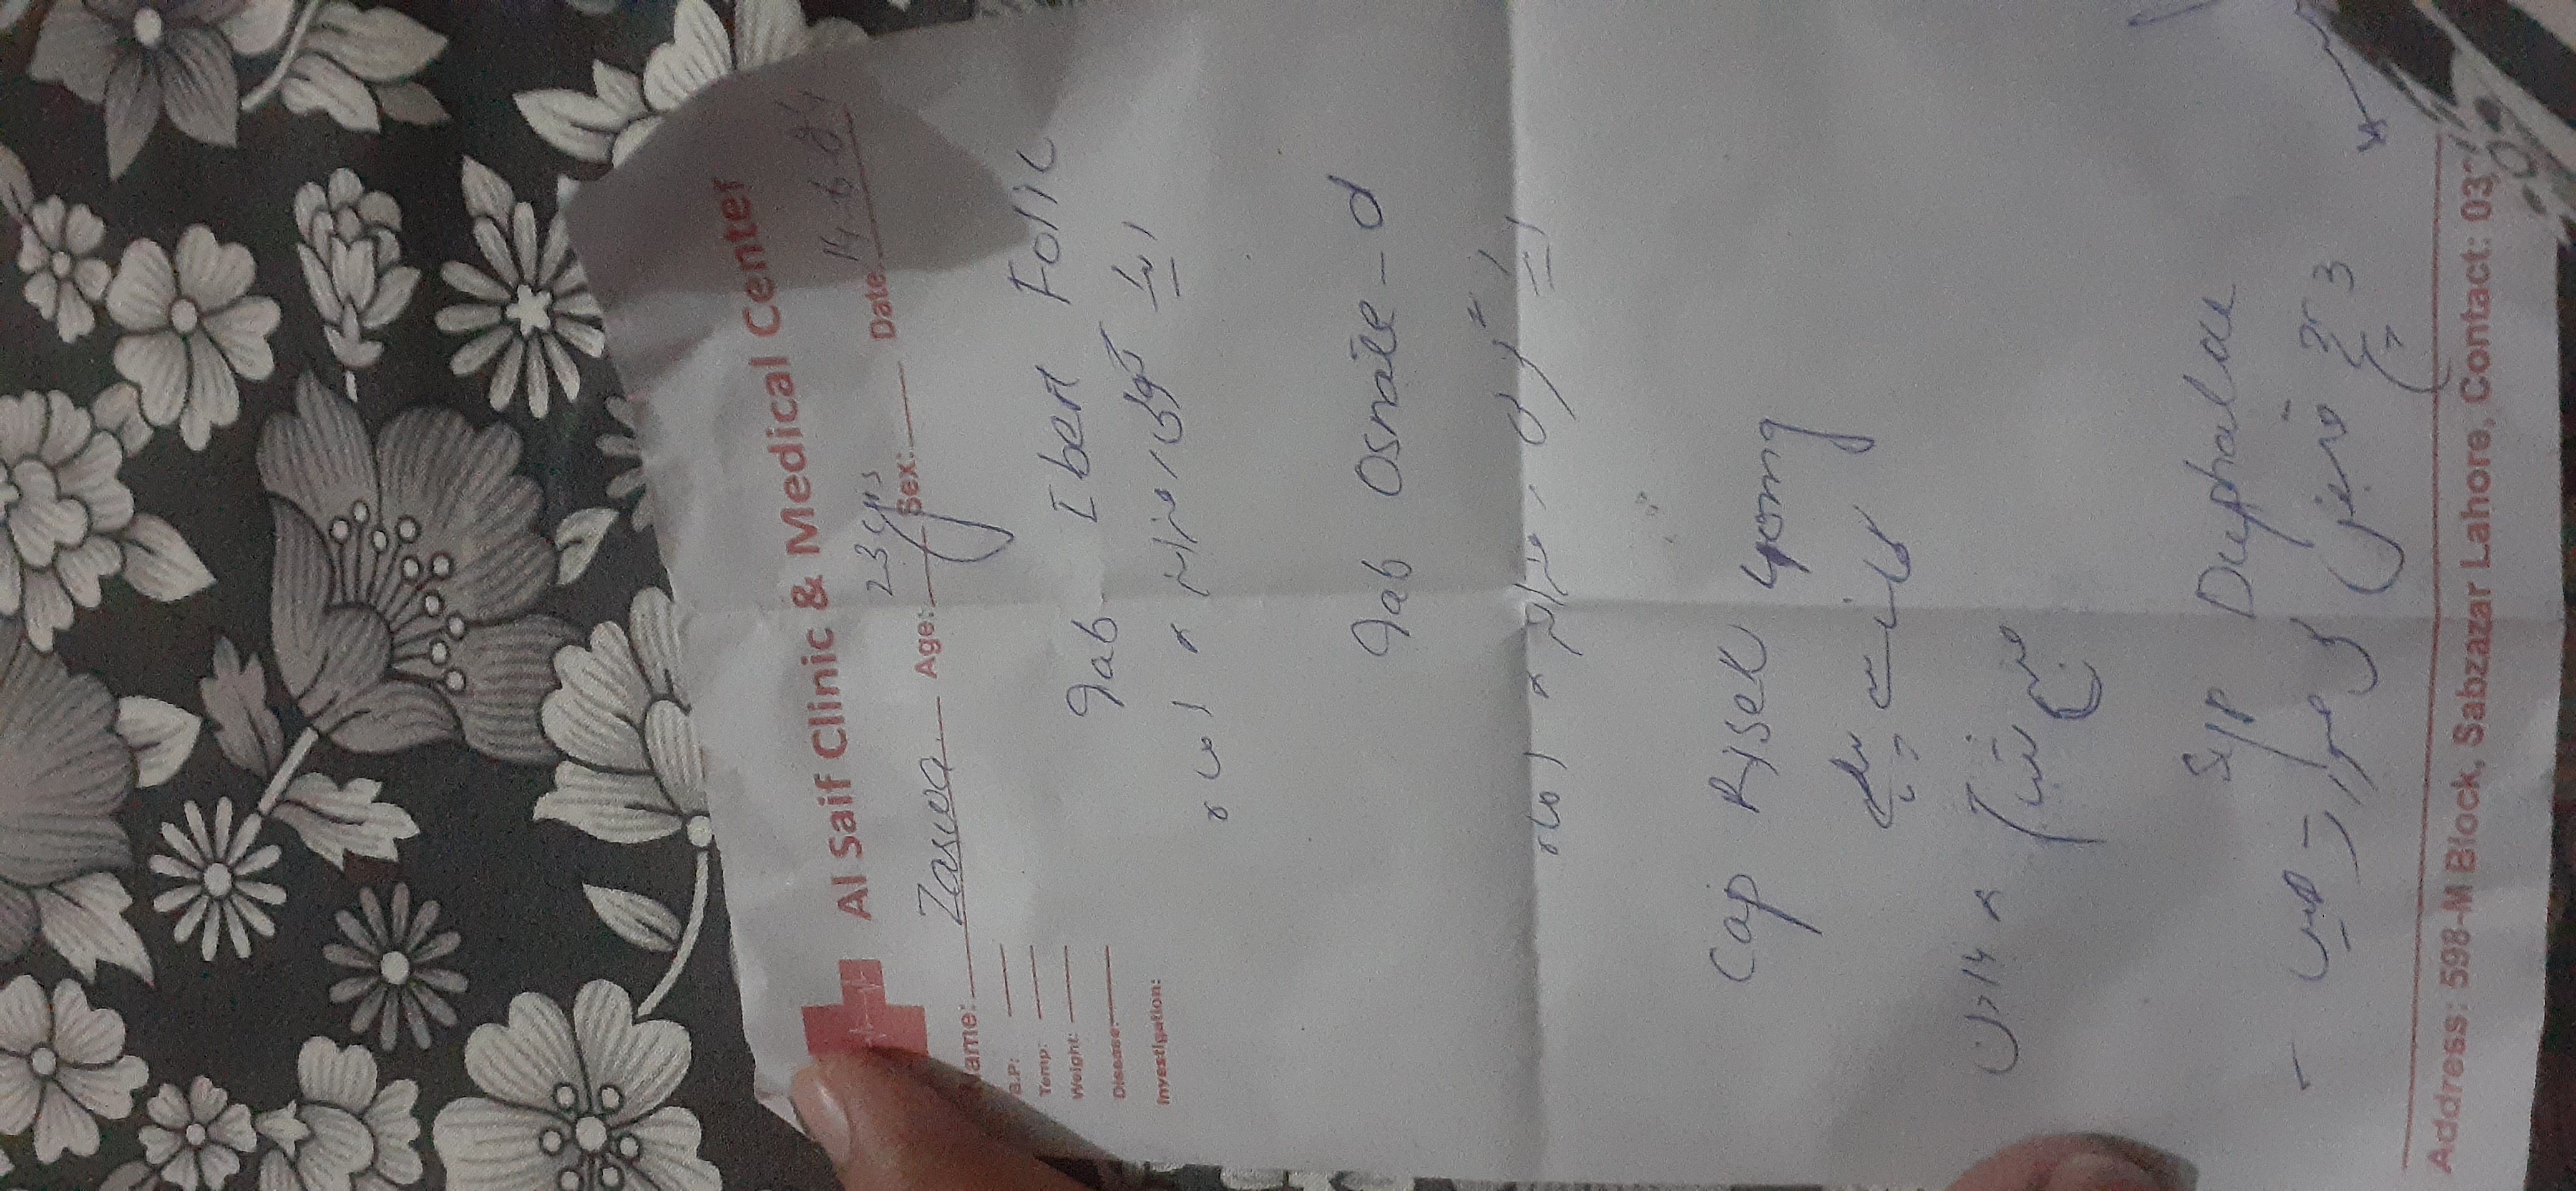 Al Saif Clinic & Medical Center
Name: Zaswa Age: 23 yrs Sex: Date: 14-6-24
B.P:
Temp:
Weight:
Disease:
Investigation:
Tab Ibert Folic
ایک گولی روزانہ × 1 ماہ
Tab Osnate-d
ایک گولی روزانہ × 1 ماہ
Cap Risek 40mg
کھانے سے پہلے
صبح شام ×  دن
Syp Duphalac
3 چمچ قبض کی صورت میں -
Address: 598-M Block, Sabzazar Lahore, Contact: 03